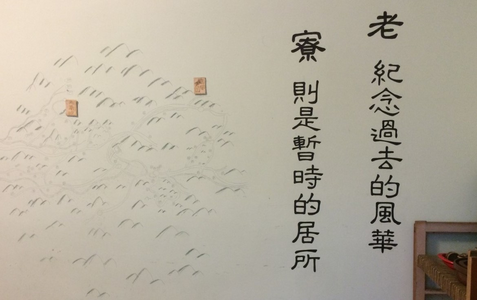 老 紀念過去的風華
寮 則是暫時的居所